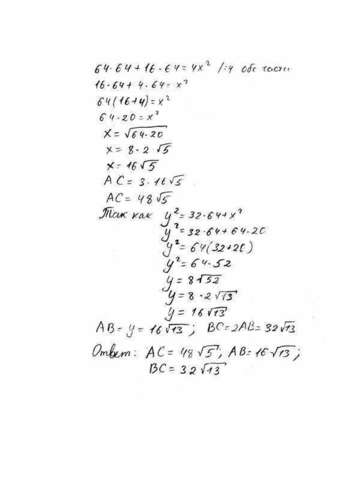 64·64+16·64=4x² /:4 обе части
16·64+4·64=x²
64(16+4)=x²
64·20=x²
x=√64·20
x=8·2√5
x=16√5
AC=3·16√5
AC=48√5
Так как y²=32·64+x²
y²=32·64+64·20
y²=64(32+20)
y²=64·52
y=8√52
y=8·2√13
y=16√13
AB=y=16√13; BC=2AB=32√13
Ответ: AC=48√5; AB=16√13;
BC=32√13